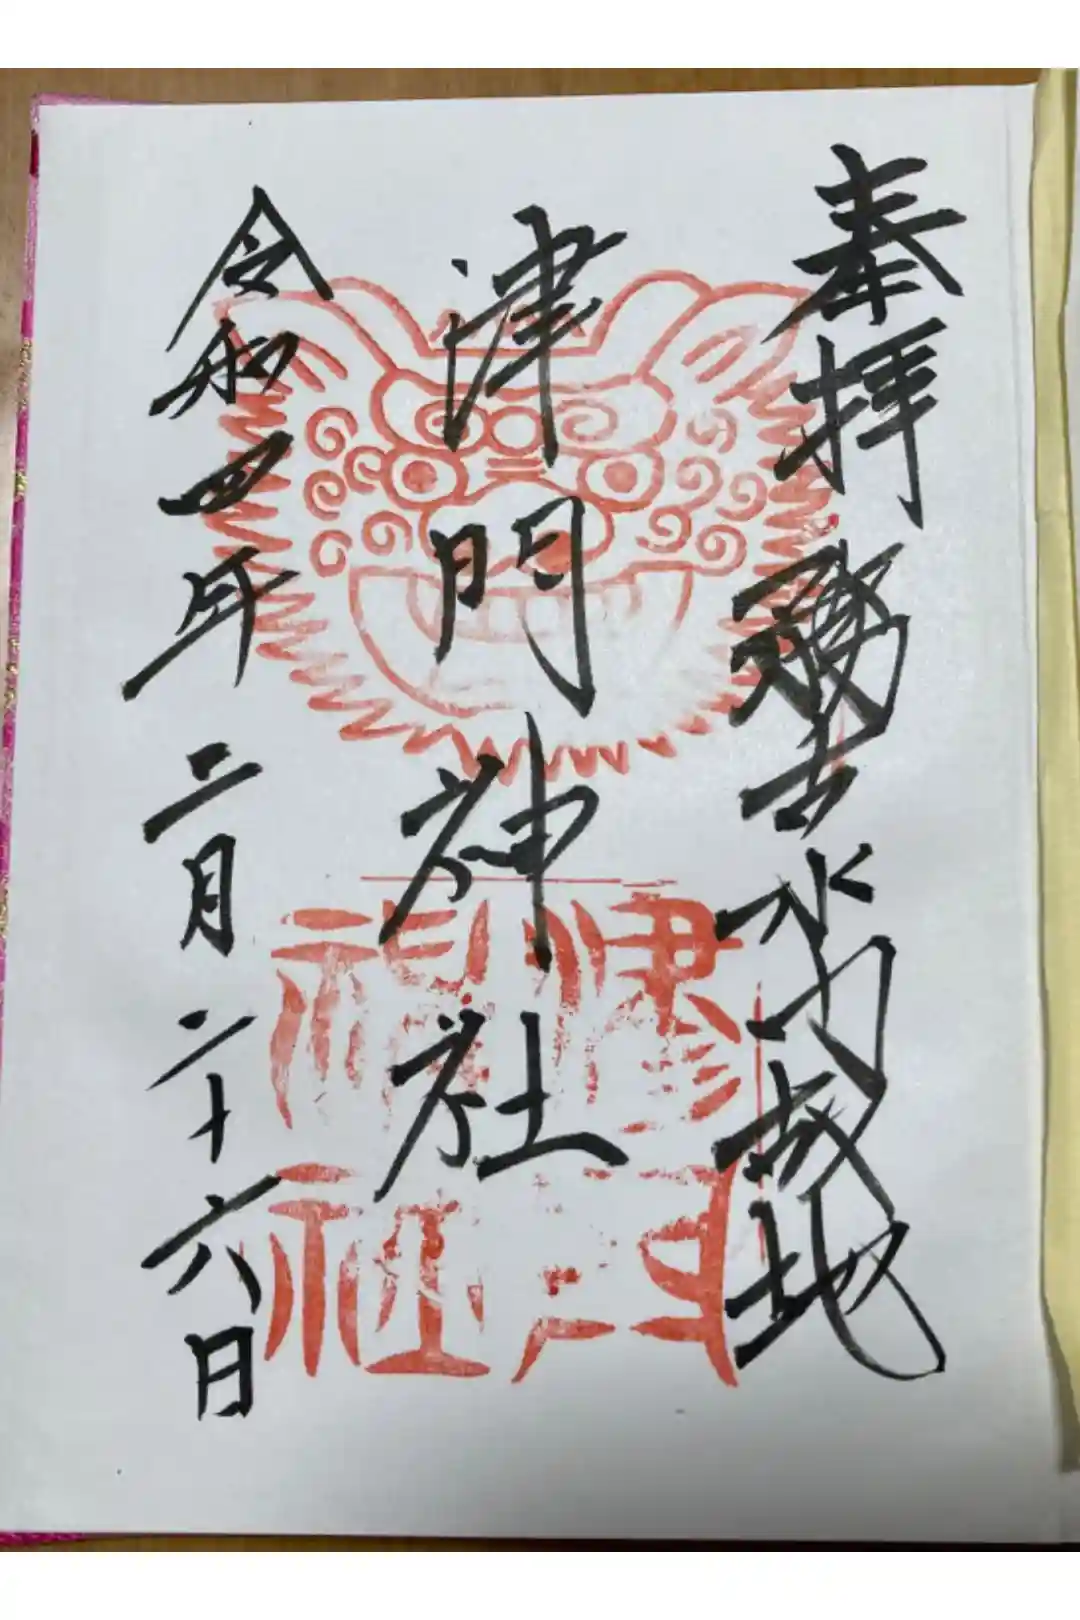 奉拝
津門神社
令和四年二月二十六日
津門神社